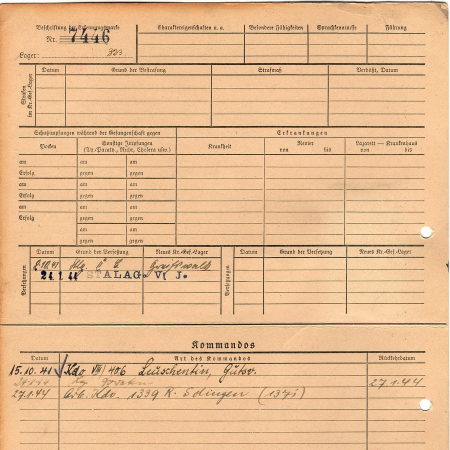 Beschriftung der Erkennungsmarke
Nr. 7446
Lager: 323
Charaktereigenschaften u. a.
Besondere Fähigkeiten
Sprachkenntnisse
Führung
Strafen im Kr.-Gef.-Lager
Datum
Grund der Bestrafung
Strafmaß
Verbüßt, Datum
Schutzimpfungen während der Gefangenschaft gegen
Erkrankungen
Pocken
Sonstige Impfungen
(Ty.-Paraty., Ruhr, Cholera usw.)
Krankheit
Revier
von bis
Lazarett — Krankenhaus
von bis
am am am
Erfolg gegen gegen
am am am
Erfolg gegen gegen
am am am
Erfolg gegen gegen
am am
gegen gegen
Versetzungen
Datum
Grund der Versetzung
Neues Kr.-Gef.-Lager
Versetzungen
Datum
Grund der Versetzung
Neues Kr.-Gef.-Lager
Greifswald
24.1.44 STALAG VI J.
Kommandos
Datum
Art des Kommandos
Rückkehrdatum
15.10.41 Kdo VIII/406 Leuschentin, Gutsv.
27.1.44
27.1.44 Arb. Kdo. 1339 R. Solingen (1371)